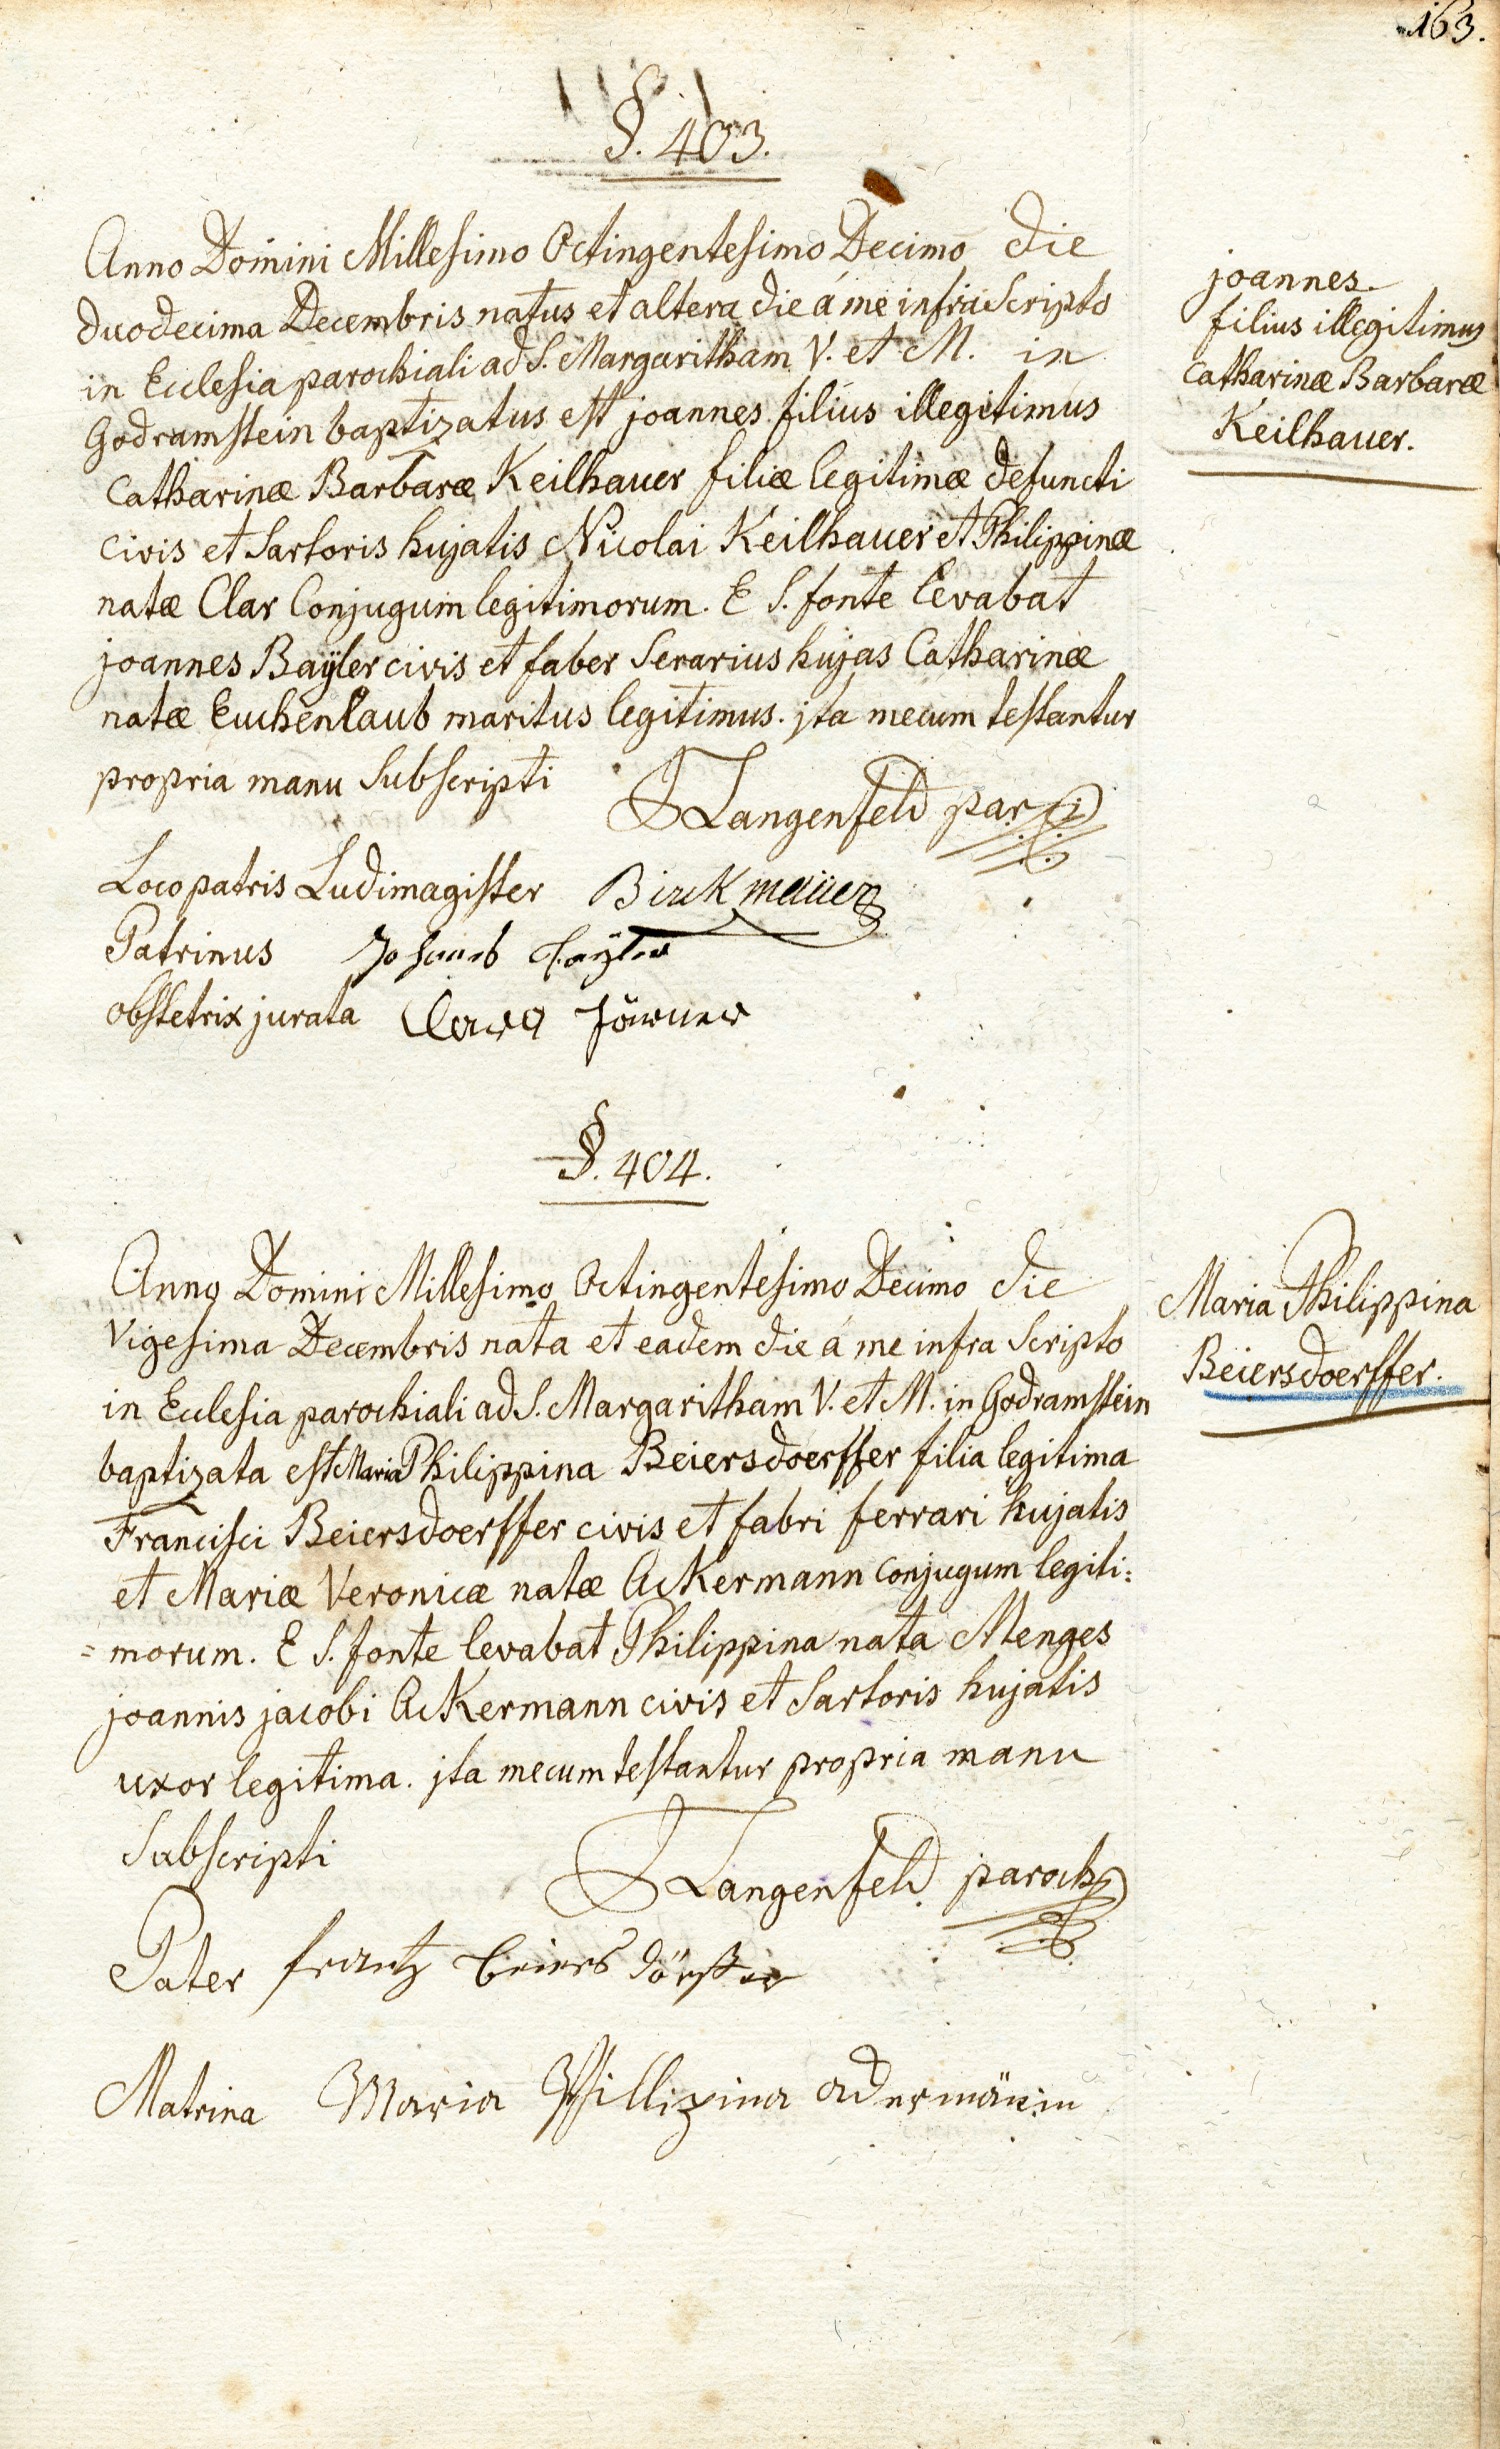 163.
§. 403.
Anno Domini Millesimo Octingentesimo Decimo die
duodecima Decembris natus et altera die á me infra Scripto
in Ecclesia parochiali ad S. Margaritham V. et M. in
Godramstein baptizatus est joannes filius illegitimus
Catharinæ Barbaræ Keilhauer filiæ legitimæ defuncti
civis et Sartoris hujatis Nicolai Keilhauer et Philippinæ
natæ Clar Conjugum legitimorum. E S. fonte levabat
joannes Baÿler civis et faber Serarius hujas Catharinæ
natæ Euchenlaub maritus legitimus. jta mecum testantur
propria manu Subscripti
Langenfeld par
Loco patris Ludimagister Birkmeÿer
Patrinus
obstetrix jurata Clara
joannes
filius illegitimus
Catharinæ Barbaræ
Keilhauer.
§. 404.
Anno Domini Millesimo Octingentesimo Decimo die
Vigesima Decembris nata et eadem die á me infra Scripto
in Ecclesia parochiali ad S. Margaritham V. et M. in Godramstein
baptizata est Maria Philippina Beiersdoerffer filia legitima
Francisci Beiersdoerffer civis et fabri ferrari hujatis
et Mariæ Veronicæ natæ Ackermann conjugum legiti:
= morum. E S. fonte levabat Philippina nata Menges
joannis jacobi Ackermann civis et Sartoris hujatis
uxor legitima. jta mecum testantur propria manu
Subscripti
Langenfeld paroch
Pater frantz beiersdörffer
Matrina Maria Phillipina
Maria Philippina
Beiersdoerffer.